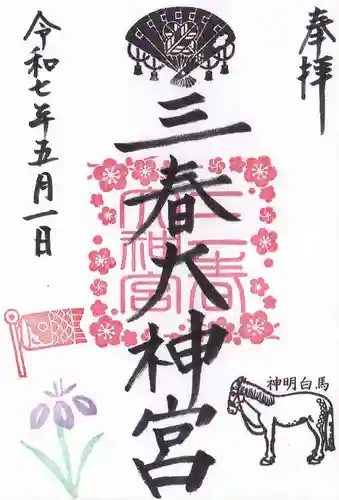 奉拝
三春大神宮
三春大神宮
令和七年五月一日
神明白馬